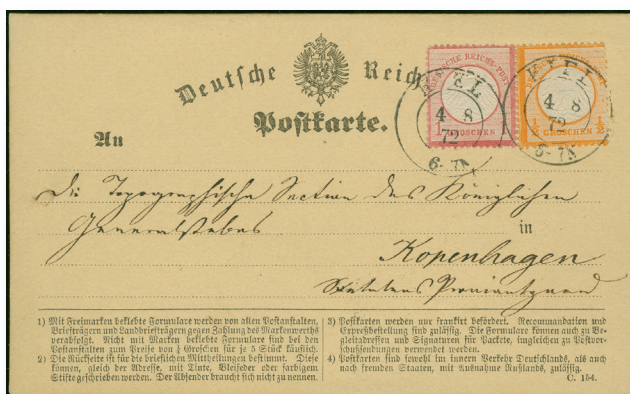 Deutsche Reichs-
Postkarte.
DEUTSCHE REICHS-POST
1 GROSCHEN 1
½ GROSCHEN ½
KIEL
4 8
72
6-7N
KIEL
4 8
72
6-7N
An
Die Topographische Section des Königlichen
Generalstabes
in
Kopenhagen
1) Mit Freimarken beklebte Formulare werden von allen Postanstalten,
Briefträgern und Landbriefträgern gegen Zahlung des Markenwerths
verabfolgt. Nicht mit Marken beklebte Formulare sind bei den
Postanstalten zum Preise von ½ Groschen für je 5 Stück käuflich.
2) Die Rückseite ist für die brieflichen Mittheilungen bestimmt. Diese
können, gleich der Adresse, mit Tinte, Bleifeder oder farbigem
Stifte geschrieben werden. Der Absender braucht sich nicht zu nennen.
3) Postkarten werden nur frankirt befördert. Recommandation und
Expreßbestellung sind zulässig. Die Formulare können auch zu Be-
gleitadressen und Signaturen für Packete, imgleichen zu Postvor-
schußsendungen verwendet werden.
4) Postkarten sind sowohl im innern Verkehr Deutschlands, als auch
nach fremden Staaten, mit Ausnahme Rußlands, zulässig.
C. 154.